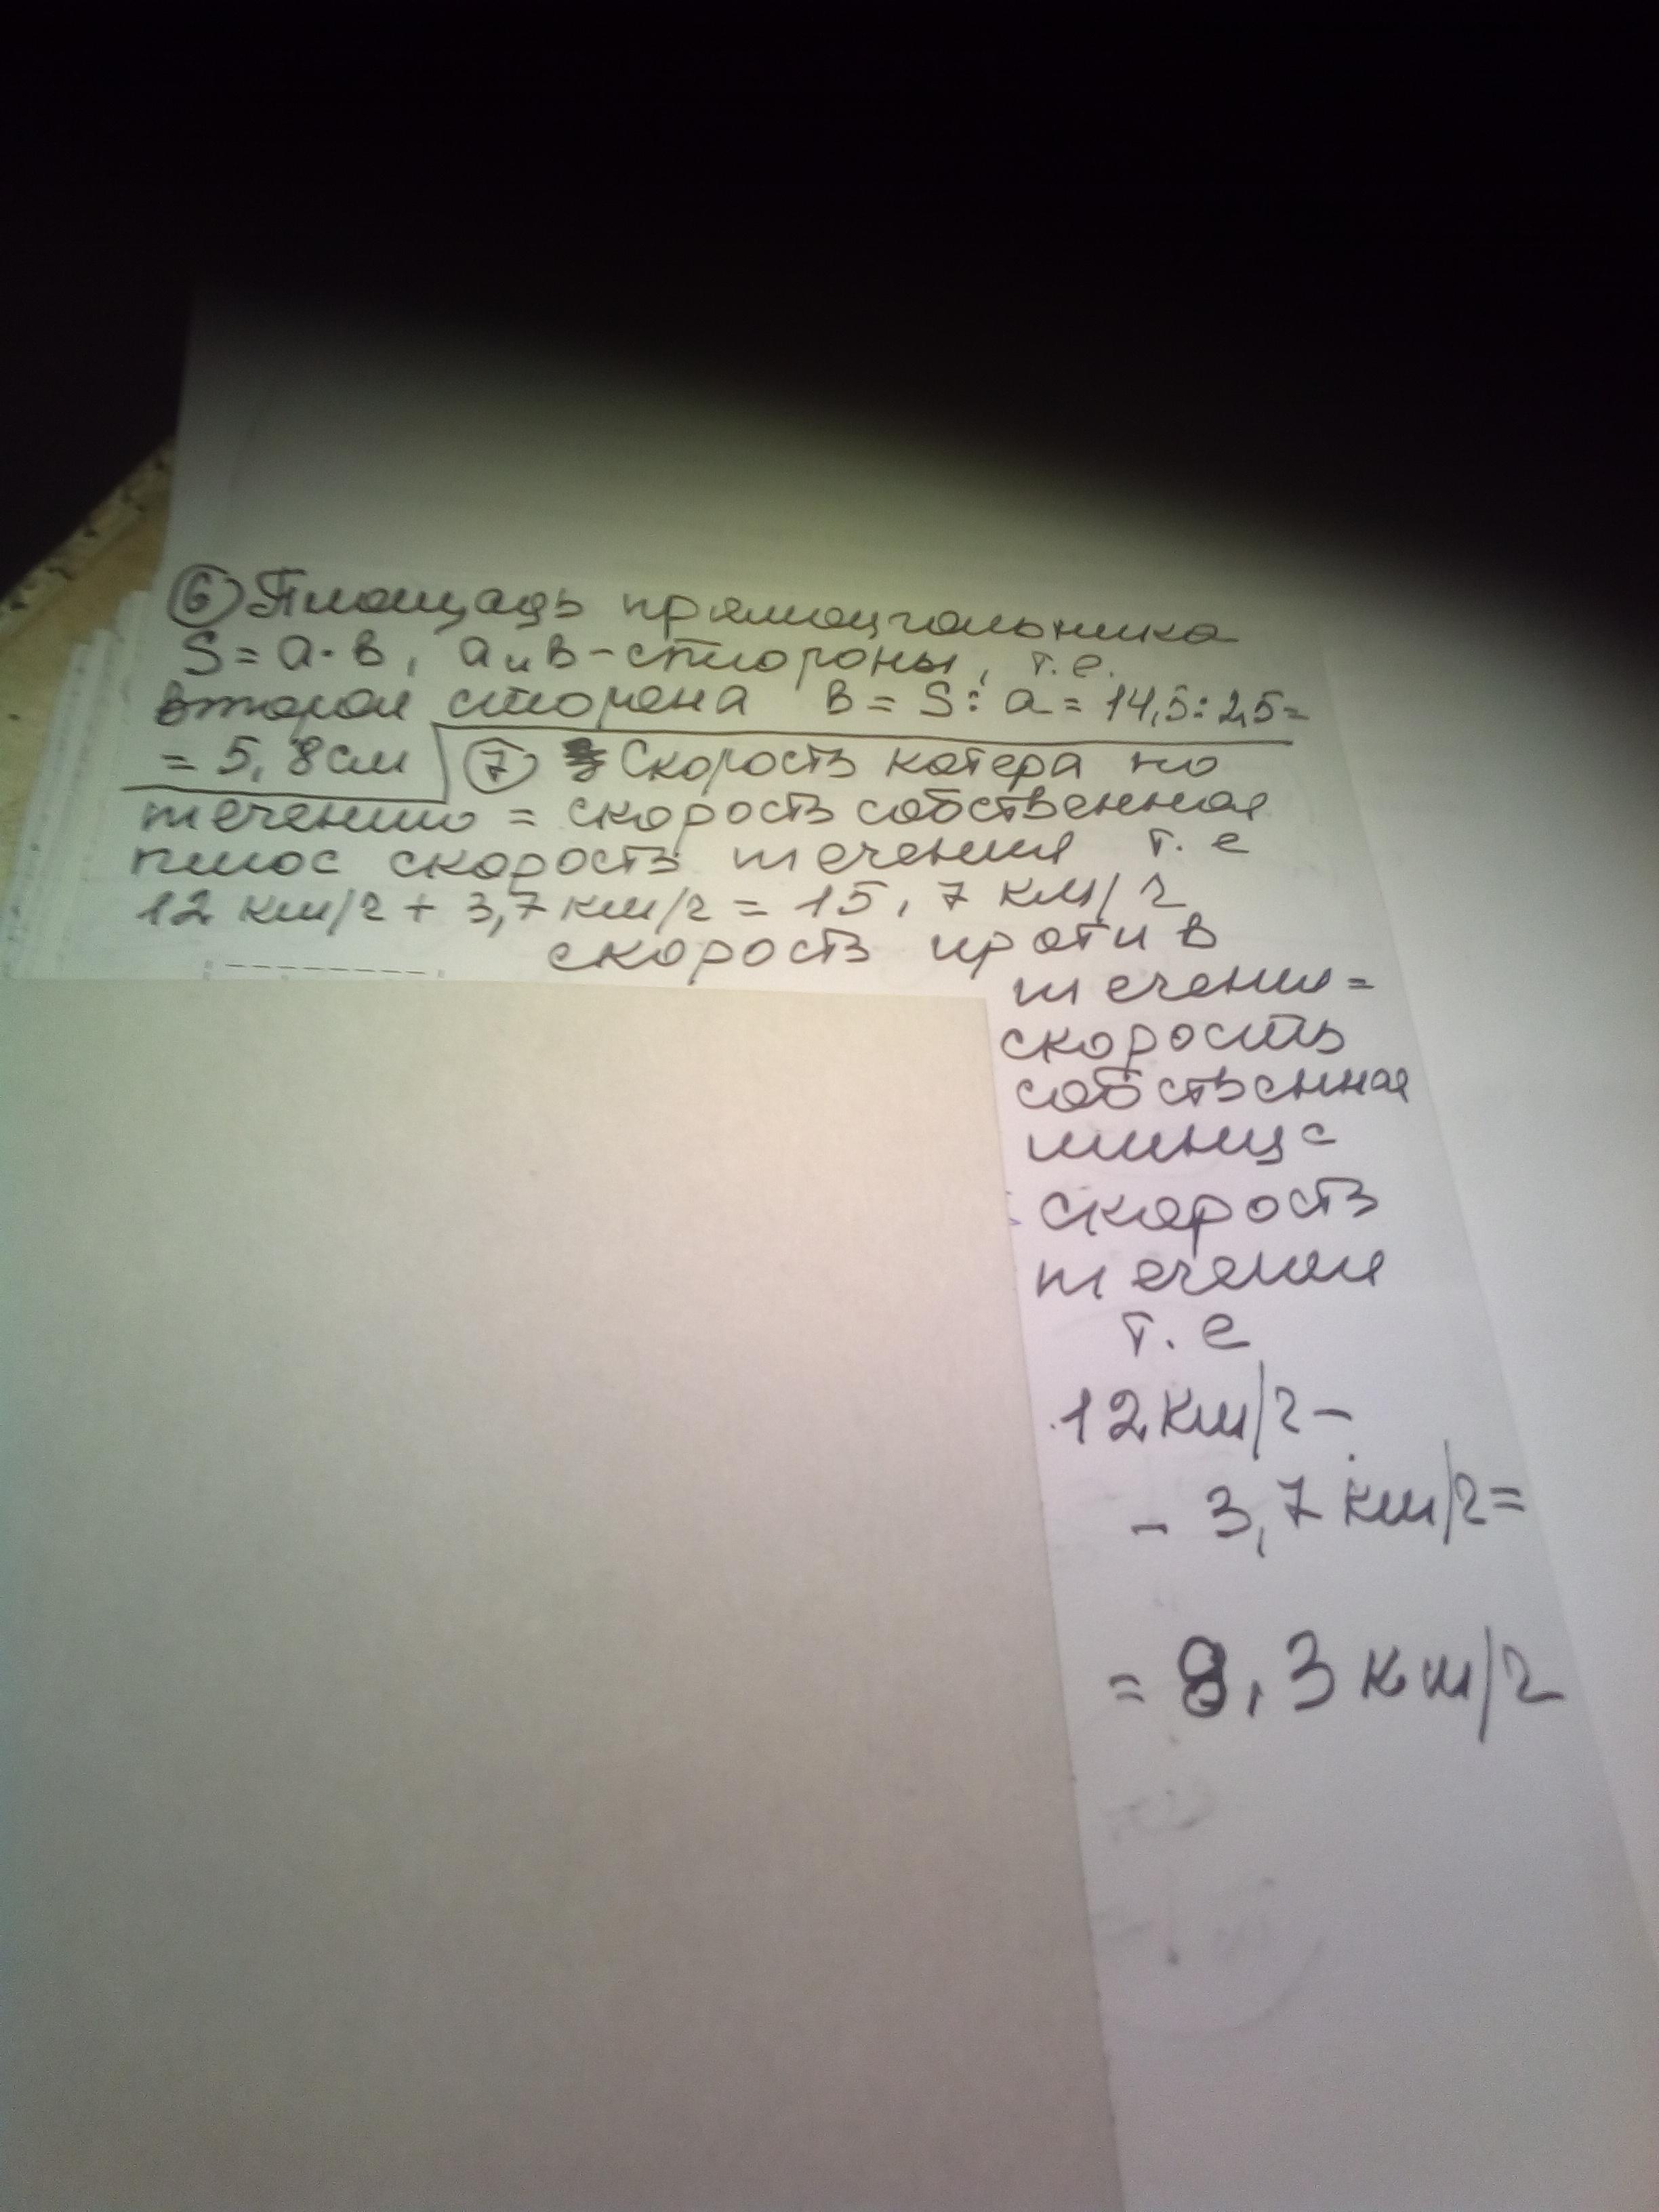 ⑥ Площадь прямоугольника
S = a · в, а и в - стороны, т.е.
вторая сторона в = S : а = 14,5 : 2,5 =
= 5,8 см ⑦ Скорость катера по
течению = скорость собственная
плюс скорость течения т.е
12 км/г + 3,7 км/г = 15,7 км/г
скорость против
течения =
скорость
собственная
минус
скорость
течения
т.е
12 км/г -
- 3,7 км/г =
= 8,3 км/г